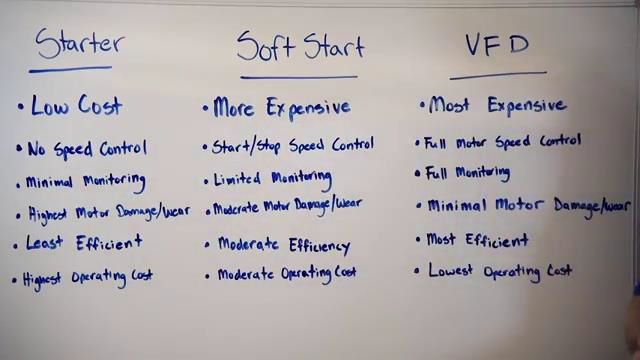 Starter
• Low Cost
• No Speed Control
• Minimal Monitoring
• Highest Motor Damage/Wear
• Least Efficient
• Highest Operating Cost
Soft Start
• More Expensive
• Start/Stop Speed Control
• Limited Monitoring
• Moderate Motor Damage/Wear
• Moderate Efficiency
• Moderate Operating Cost
VFD
• Most Expensive
• Full Motor Speed Control
• Full Monitoring
• Minimal Motor Damage/Wear
• Most Efficient
• Lowest Operating Cost